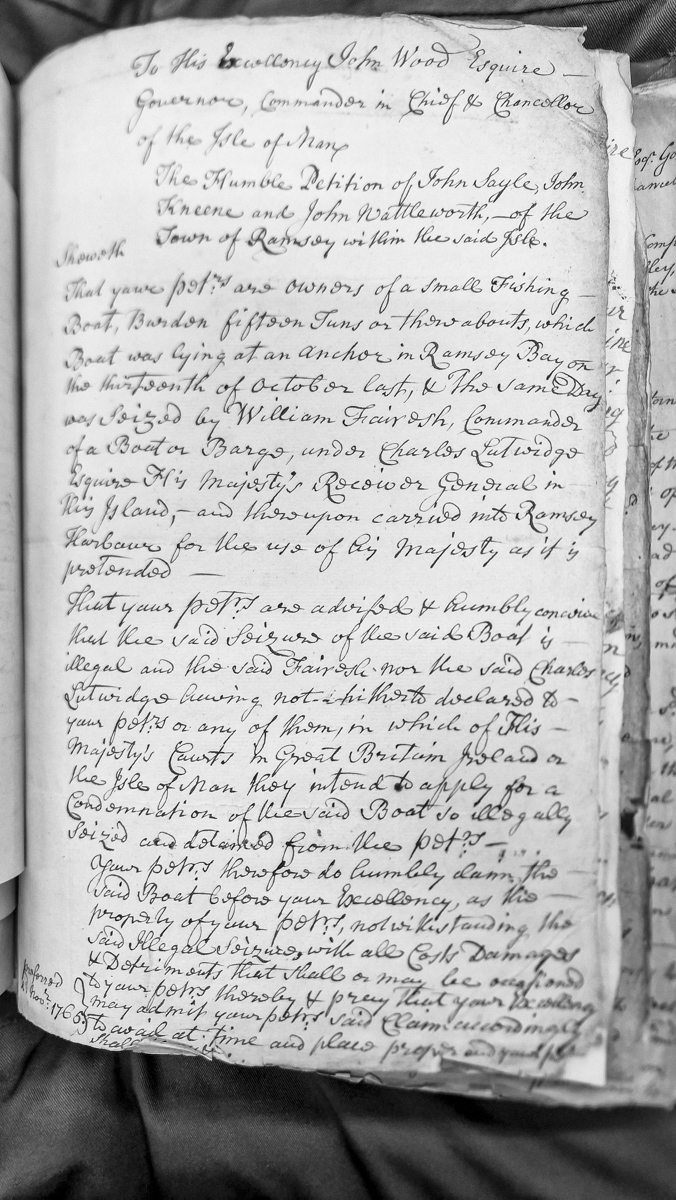 To His Excellency John Wood Esquire —
Governor, Commander in Chief & Chancellor
of the Isle of Man
The Humble Petition of John Sayle, John
Kneene and John Wattleworth, — of the
Town of Ramsey within the said Isle.
Sheweth
That your petrs. are owners of a small Fishing —
Boat, Burden fifteen Tuns or thereabouts, which
Boat was lying at an Anchor in Ramsey Bay on
the thirteenth of October last, & the same Day
was Seized by William Fairesh, Commander
of a Boat or Barge, under Charles Lutwidge
Esquire His Majesty's Receiver General in —
this Island, — and thereupon carried into Ramsey
Harbour for the use of his Majesty as it is
pretended —
That your petrs. are advised & humbly conceive
that the said Seizure of the said Boat is —
illegal and the said Fairesh nor the said Charles
Lutwidge having not hitherto declared to —
your petrs or any of them, in which of His —
Majesty's Courts in Great Britain Ireland or
the Isle of Man they intend to apply for a
Condemnation of the said Boat so illegally
Seized and detained from the petrs. —
Your petrs therefore do humbly claim the
said Boat before your Excellency, as the —
property of your petrs, notwithstanding the
said Illegal Seizure, with all Costs Damages
& Detriments that shall or may be occasioned
to your petrs thereby & pray that your Excellency
may admit your petrs said Claim accordingly
to avail at time and place proper and your
shall
preferred
Novr. 1765